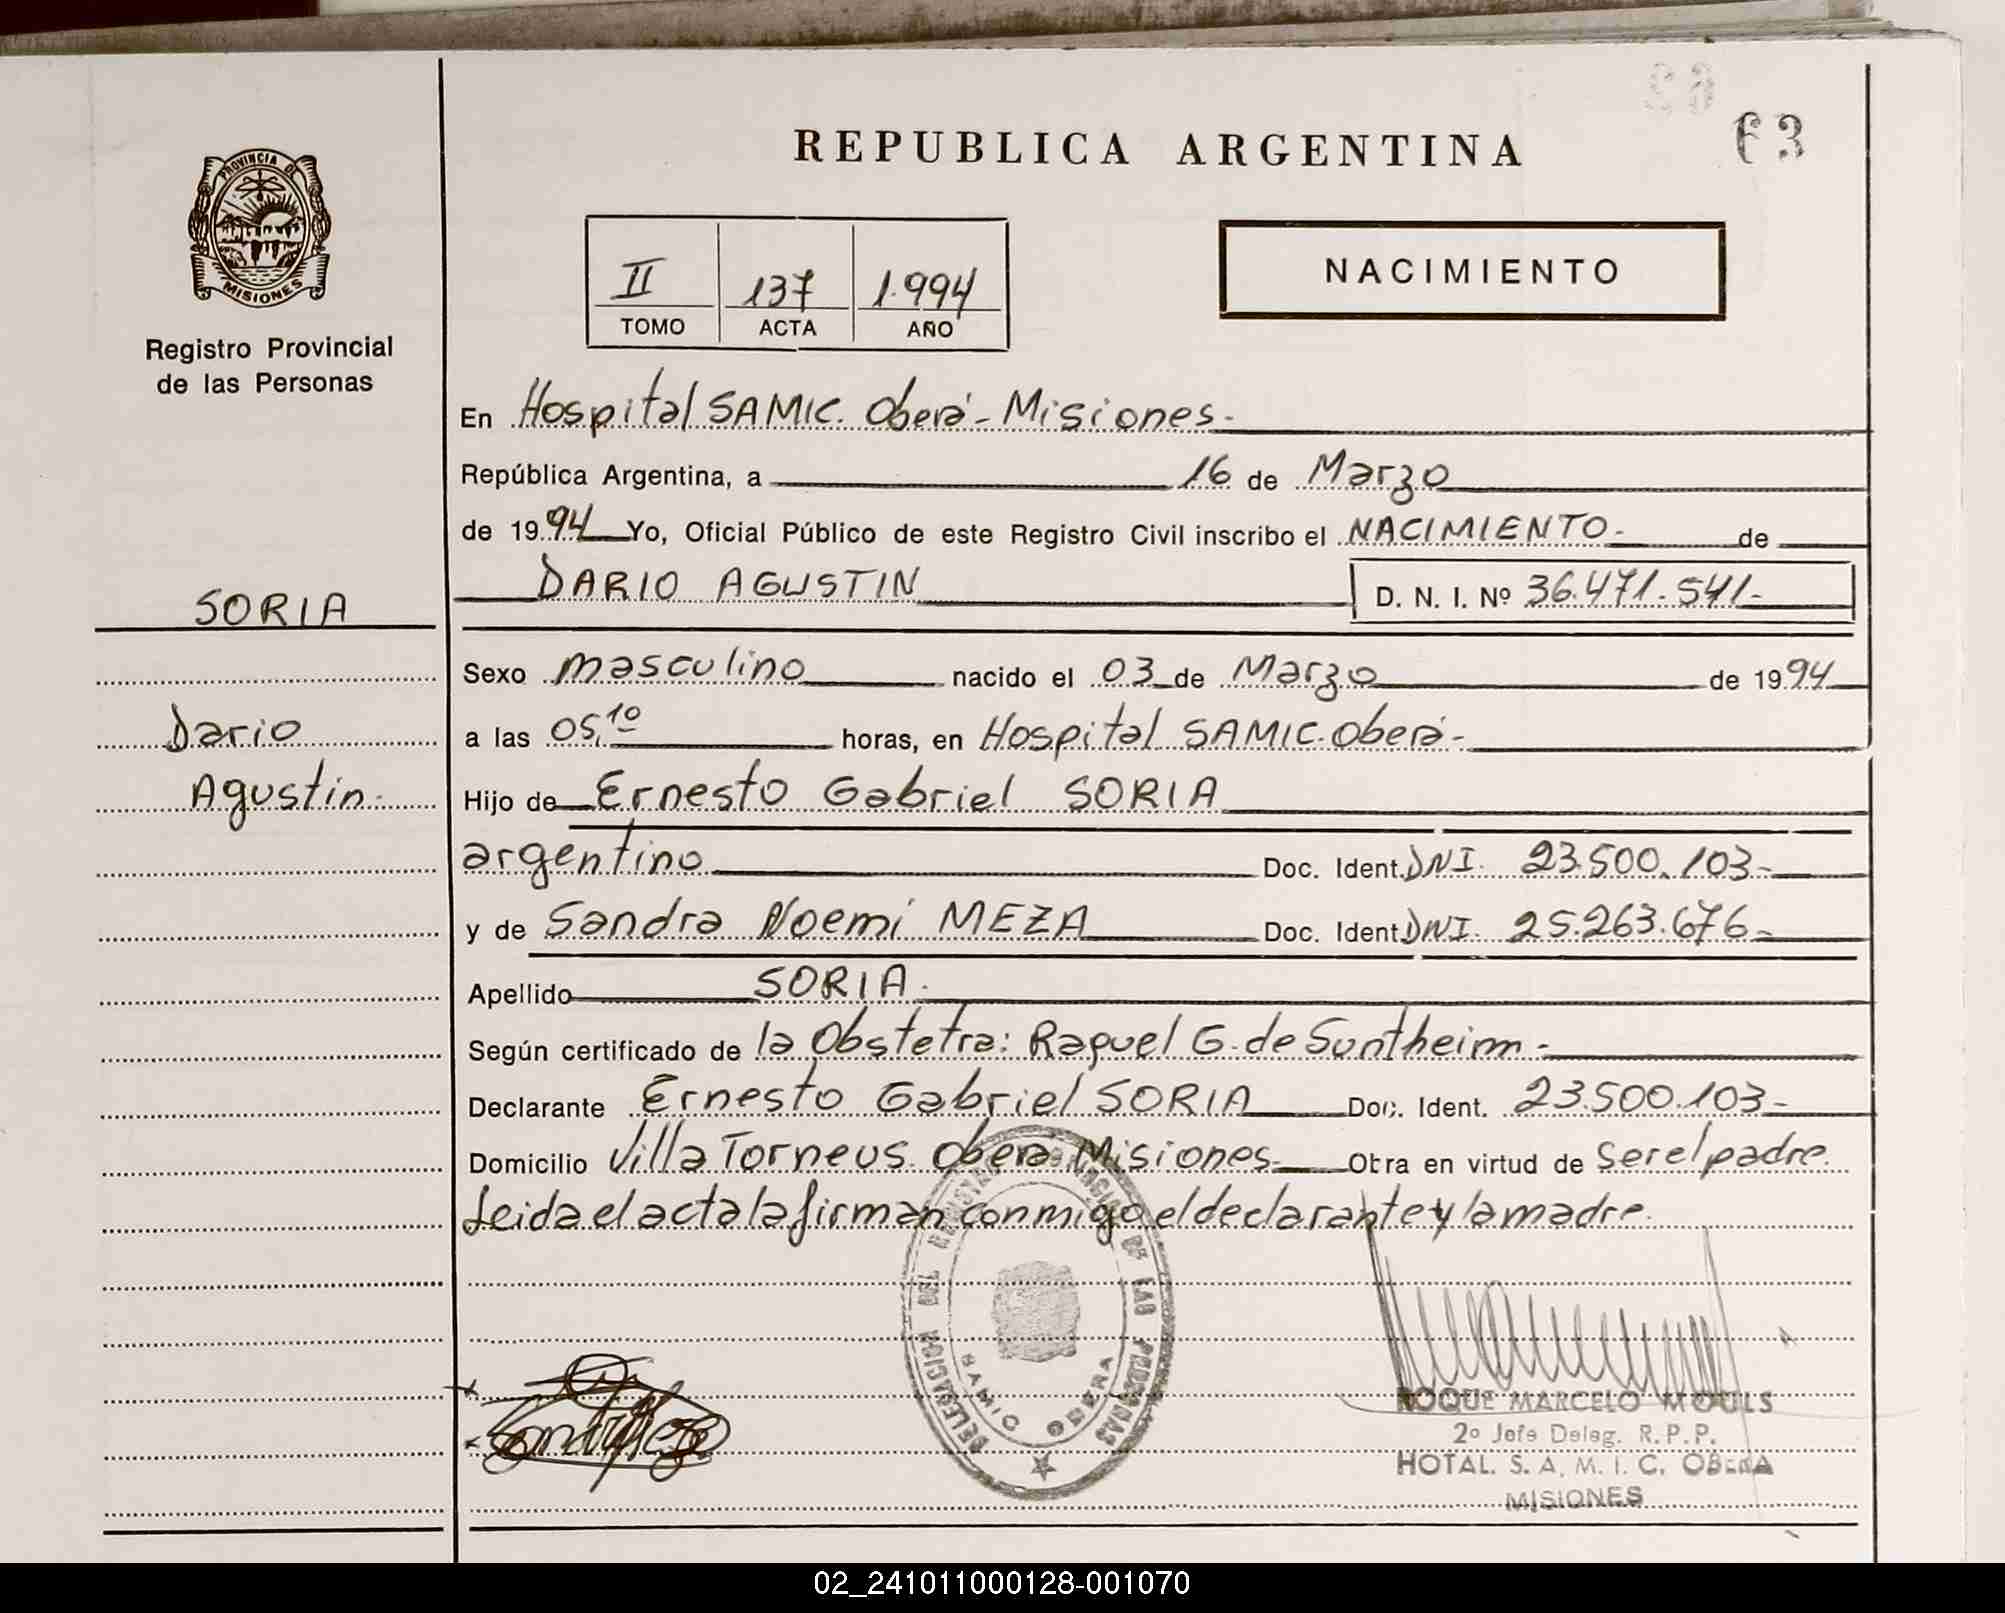 63
REPUBLICA ARGENTINA
PROVINCIA DE MISIONES
Registro Provincial
de las Personas
II 137 1.994
TOMO ACTA AÑO
NACIMIENTO
En Hospital SAMIC. Oberá - Misiones.-
República Argentina, a 16 de Marzo
de 19 94 Yo, Oficial Público de este Registro Civil inscribo el NACIMIENTO.- de
DARIO AGUSTIN D. N. I. Nº 36.471.541.-
SORIA
Dario
Agustin.
Sexo masculino nacido el 03 de Marzo de 19 94
a las 05,10 horas, en Hospital SAMIC. Oberá-
Hijo de Ernesto Gabriel SORIA
argentino Doc. Ident. DNI. 23.500.103-
y de Sandra Noemí MEZA Doc. Ident. DNI. 25.263.676-
Apellido SORIA.
Según certificado de la Obstetra: Raquel G. de Suntheim.-
Declarante Ernesto Gabriel SORIA Doc. Ident. 23.500.103-
Domicilio Villa Torneus. Oberá. Misiones Obra en virtud de ser el padre.
Leida el acta la firman conmigo el declarante y la madre.
DELEGACION DEL REGISTRO PROVINCIAL DE LAS PERSONAS
SAMIC OBERA
ROQUE MARCELO MOULS
2º Jefe Deleg. R.P.P.
HOTAL. S. A. M. I. C. OBERA
MISIONES
02_241011000128-001070